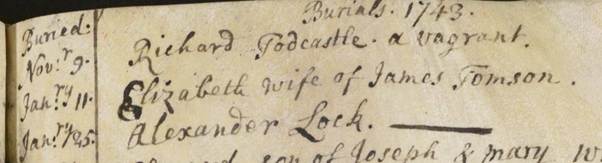 Burials. 1743.
Buried.
Nov.r 9. Richard Todcastle. a vagrant.
Jan.ry 11. Elizabeth wife of James Tomson.
Jan.ry 25. Alexander Lock.
son of Joseph & mary